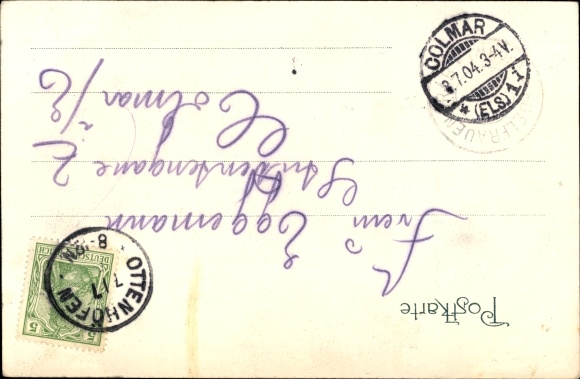 Postkarte
Frau Eggemann
Studentengasse 2
Colmar i/E
OTTENHÖFEN
7 7
8-9N.
DEUTSCHES REICH
5 5
COLMAR
8.7.04.3-4V.
* (ELS) 1 f